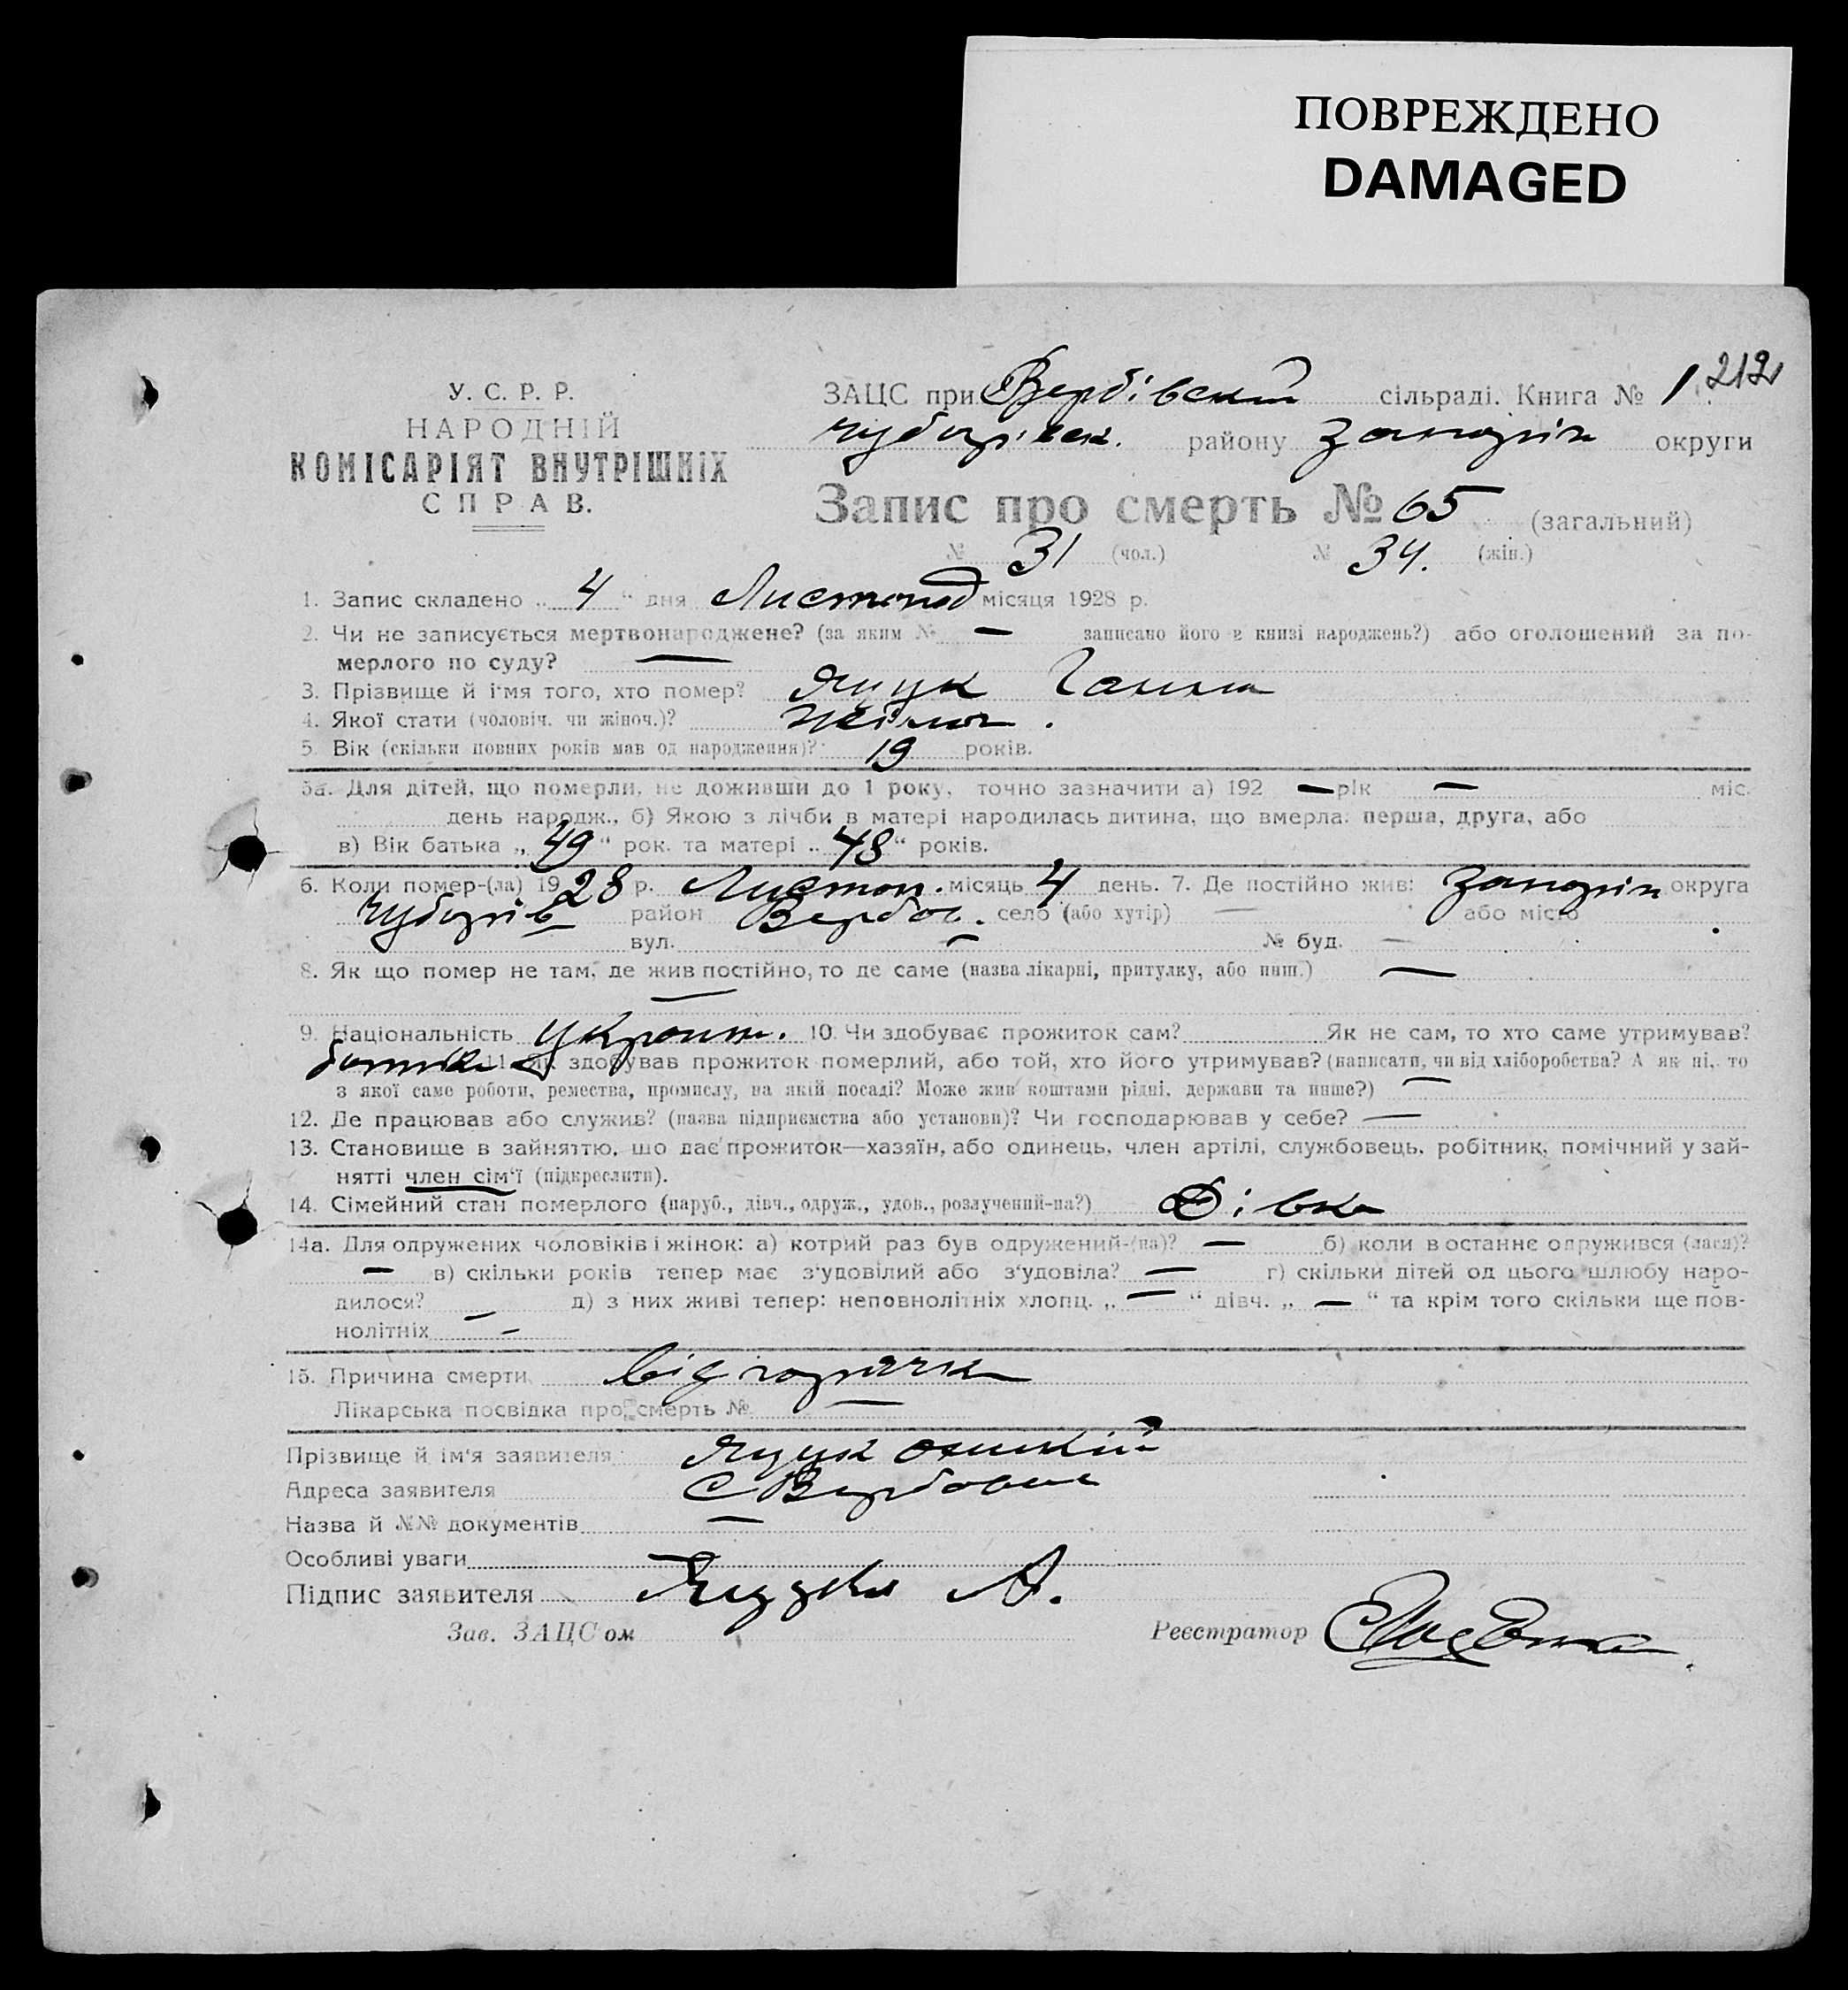 ПОВРЕЖДЕНО
DAMAGED
212
У. С. Р. Р.
НАРОДНІЙ
КОМІСАРІЯТ ВНУТРІШНІХ
СПРАВ.
ЗАЦС при Вербівский сільраді. Книга № 1
чубарівск. району Запоріж округи
Запис про смерть № 65 (загальний)
№ 31 (чол.) № 34. (жін.)
1. Запис складено „ 4 " дня Листопад місяця 1928 р.
2. Чи не записується мертвонароджене? (за яким № — записано його в книзі народжень?) або оголошений за по-
мерлого по суду? —
3. Прізвище й ім'я того, хто помер? Яцук Ганна
4. Якої стати (чоловіч. чи жіноч.)? жіноч.
5. Вік (скільки повних років мав од народження)? 19 років.
5а. Для дітей, що померли, не доживши до 1 року, точно зазначити а) 192 — рік — міс.
день народж., б) Якою з лічби в матері народилась дитина, що вмерла: перша, друга, або
в) Вік батька „ 49 " рок. та матері „ 48 " років.
6. Коли помер-(ла) 1928 р. Листоп. місяць 4 день. 7. Де постійно жив: Запоріж округа
Чубарів район Вербов. село (або хутір) — або місто
вул. — № буд. —
8. Як що помер не там, де жив постійно, то де саме (назва лікарні, притулку, або инш.) —
—
9. Національність україн. 10. Чи здобуває прожиток сам? Як не сам, то хто саме утримував?
батько 11. Як здобував прожиток померлий, або той, хто його утримував? (написати, чи від хліборобства? А як ні, то
з якої саме роботи, ремества, промислу, на якій посаді? Може жив коштами рідні, держави та инше?) —
12. Де працював або служив? (назва підприємства або установи)? Чи господарював у себе? —
13. Становище в зайняттю, що дає прожиток—хазяїн, або одинець, член артілі, службовець, робітник, помічний у зай-
нятті член сім'ї (підкреслити).
14. Сімейний стан померлого (паруб., дівч., одруж., удов., розлучений-на?) Дівка
14а. Для одружених чоловіків і жінок: а) котрий раз був одружений-(на)? — б) коли в останнє одружився (лася)?
— в) скільки років тепер має з'удовілий або з'удовіла? — г) скільки дітей од цього шлюбу наро-
дилося? — д) з них живі тепер: неповнолітніх хлопц. „ — " дівч. „ — " та крім того скільки ще пов-
нолітніх —
15. Причина смерти від горячки
Лікарська посвідка про смерть № —
Прізвище й ім'я заявителя Яцук
Адреса заявителя С Вербове
Назва й №№ документів —
Особливі уваги
Підпис заявителя А.
Зав. ЗАЦС'ом Реєстратор